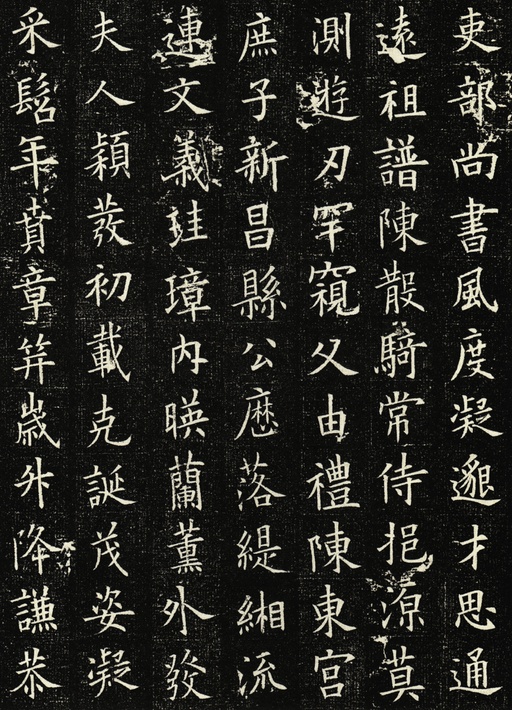 吏部尚書風度凝邈才思通
遠祖譜陳散騎常侍挹源莫
測遊刃罕窺父由禮陳東宮
庶子新昌縣公歷落緹緗流
連文義珪璋内暎蘭薰外發
夫人穎發初載克誕茂姿凝
采髫年蕡章笄歲升降謙恭